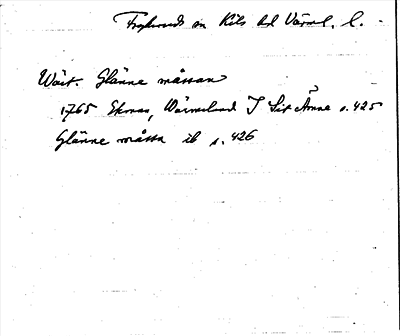 Fryksände sn Kils hd Värml. l.
Wäst. Glänne måssan
1765 Ekman, Wärmeland I Sit Änne s. 425
Glänne måssa ib s. 426